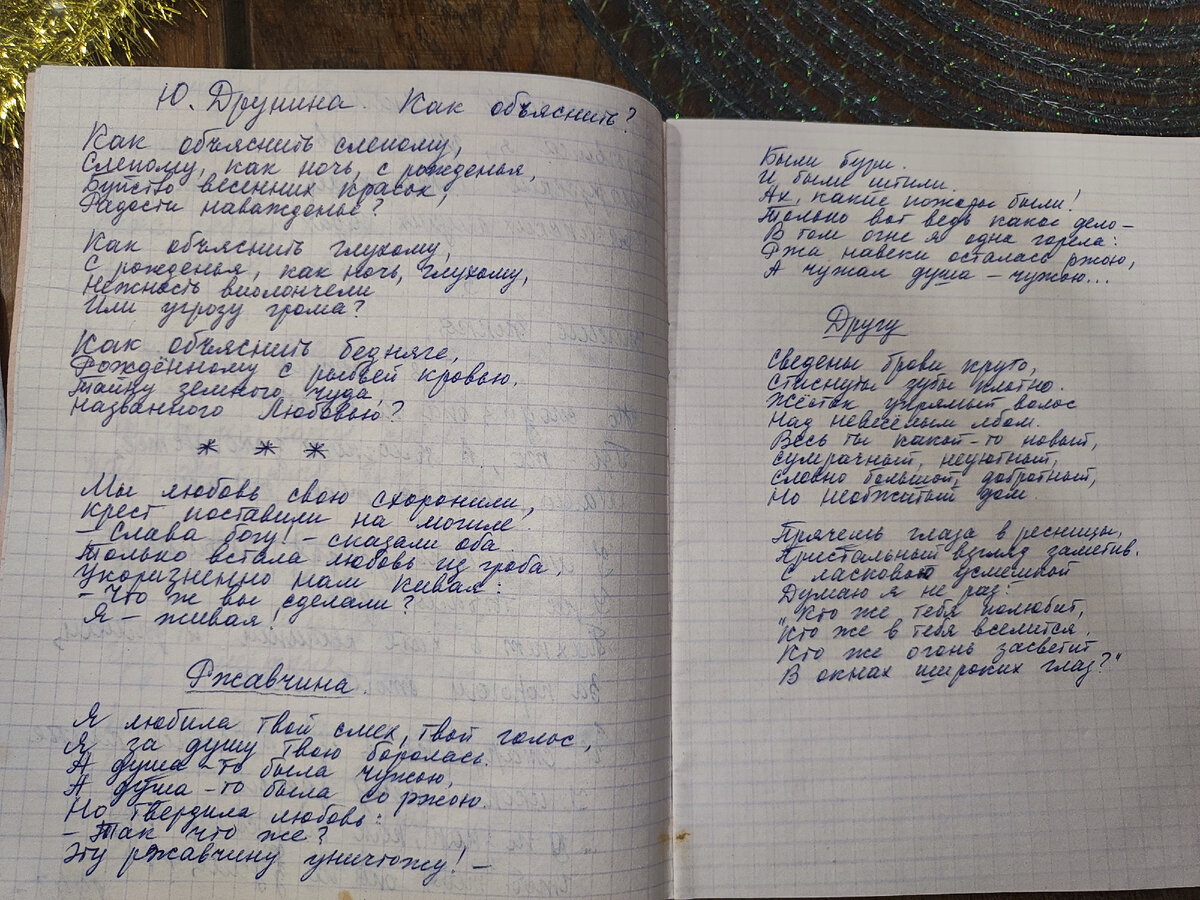 Ю. Друнина. Как объяснить?
Как объяснить слепому,
Слепому, как ночь, с рожденья,
Буйство весенних красок,
Радости наважденье?
Как объяснить глухому,
С рожденья, как ночь, глухому,
Нежность виолончели
Или угрозу грома?
Как объяснить бедняге,
Рождённому с рыбьей кровью,
Тайну земного чуда,
Названного Любовью?
* * *
Мы любовь свою схоронили,
Крест поставили на могиле.
- Слава богу! - сказали оба.
Только встала любовь из гроба,
Укоризненно нам кивая:
- Что ж вы сделали?
Я - живая!
Ржавчина.
Я любила твой смех, твой голос,
Я за душу твою боролась.
А душа-то была чужою,
А душа-то была со ржою.
Но твердила любовь:
- Так что же?
Эту ржавчину уничтожу! -
Были бури.
И были штили.
Ах, какие пожары были!
Только вот ведь какое дело -
В том огне я одна горела:
Ржа навеки осталась ржою,
А чужая душа - чужою...
Другу
Сведены брови круто,
Стиснуты зубы плотно.
Жёсток упрямый волос
Над невесёлым лбом.
Весь ты какой-то новый,
Сумрачный, неуютный,
Словно большой, добротный,
Но необжитый дом.
Прячешь глаза в ресницы,
Пристальный взгляд заметив.
С ласковою усмешкой
Думаю я не раз:
"Кто же тебя полюбит,
Кто же в тебя вселится.
Кто же огонь засветит
В окнах широких глаз?"